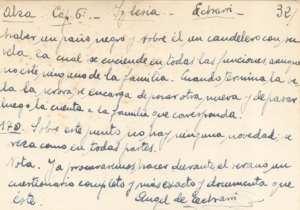 Alza Cap. 6. - Iglesia - Echarri 32/
haber un paño negro y sobre él un candelero con su
vela, la cual se enciende en todas las funciones aunque
no esté uno de la familia. Cuando termina la ve
la la serora se encarga de poner otra nueva y de pasar
luego la cuenta a la familia que corresponda.
170. Sobre este punto no hay ninguna novedad; se
reza como en todas partes.
Nota. Ya procuraremos hacer durante el verano un
cuestionario completo y más exacto y documenta que
éste. Angel de Echarri